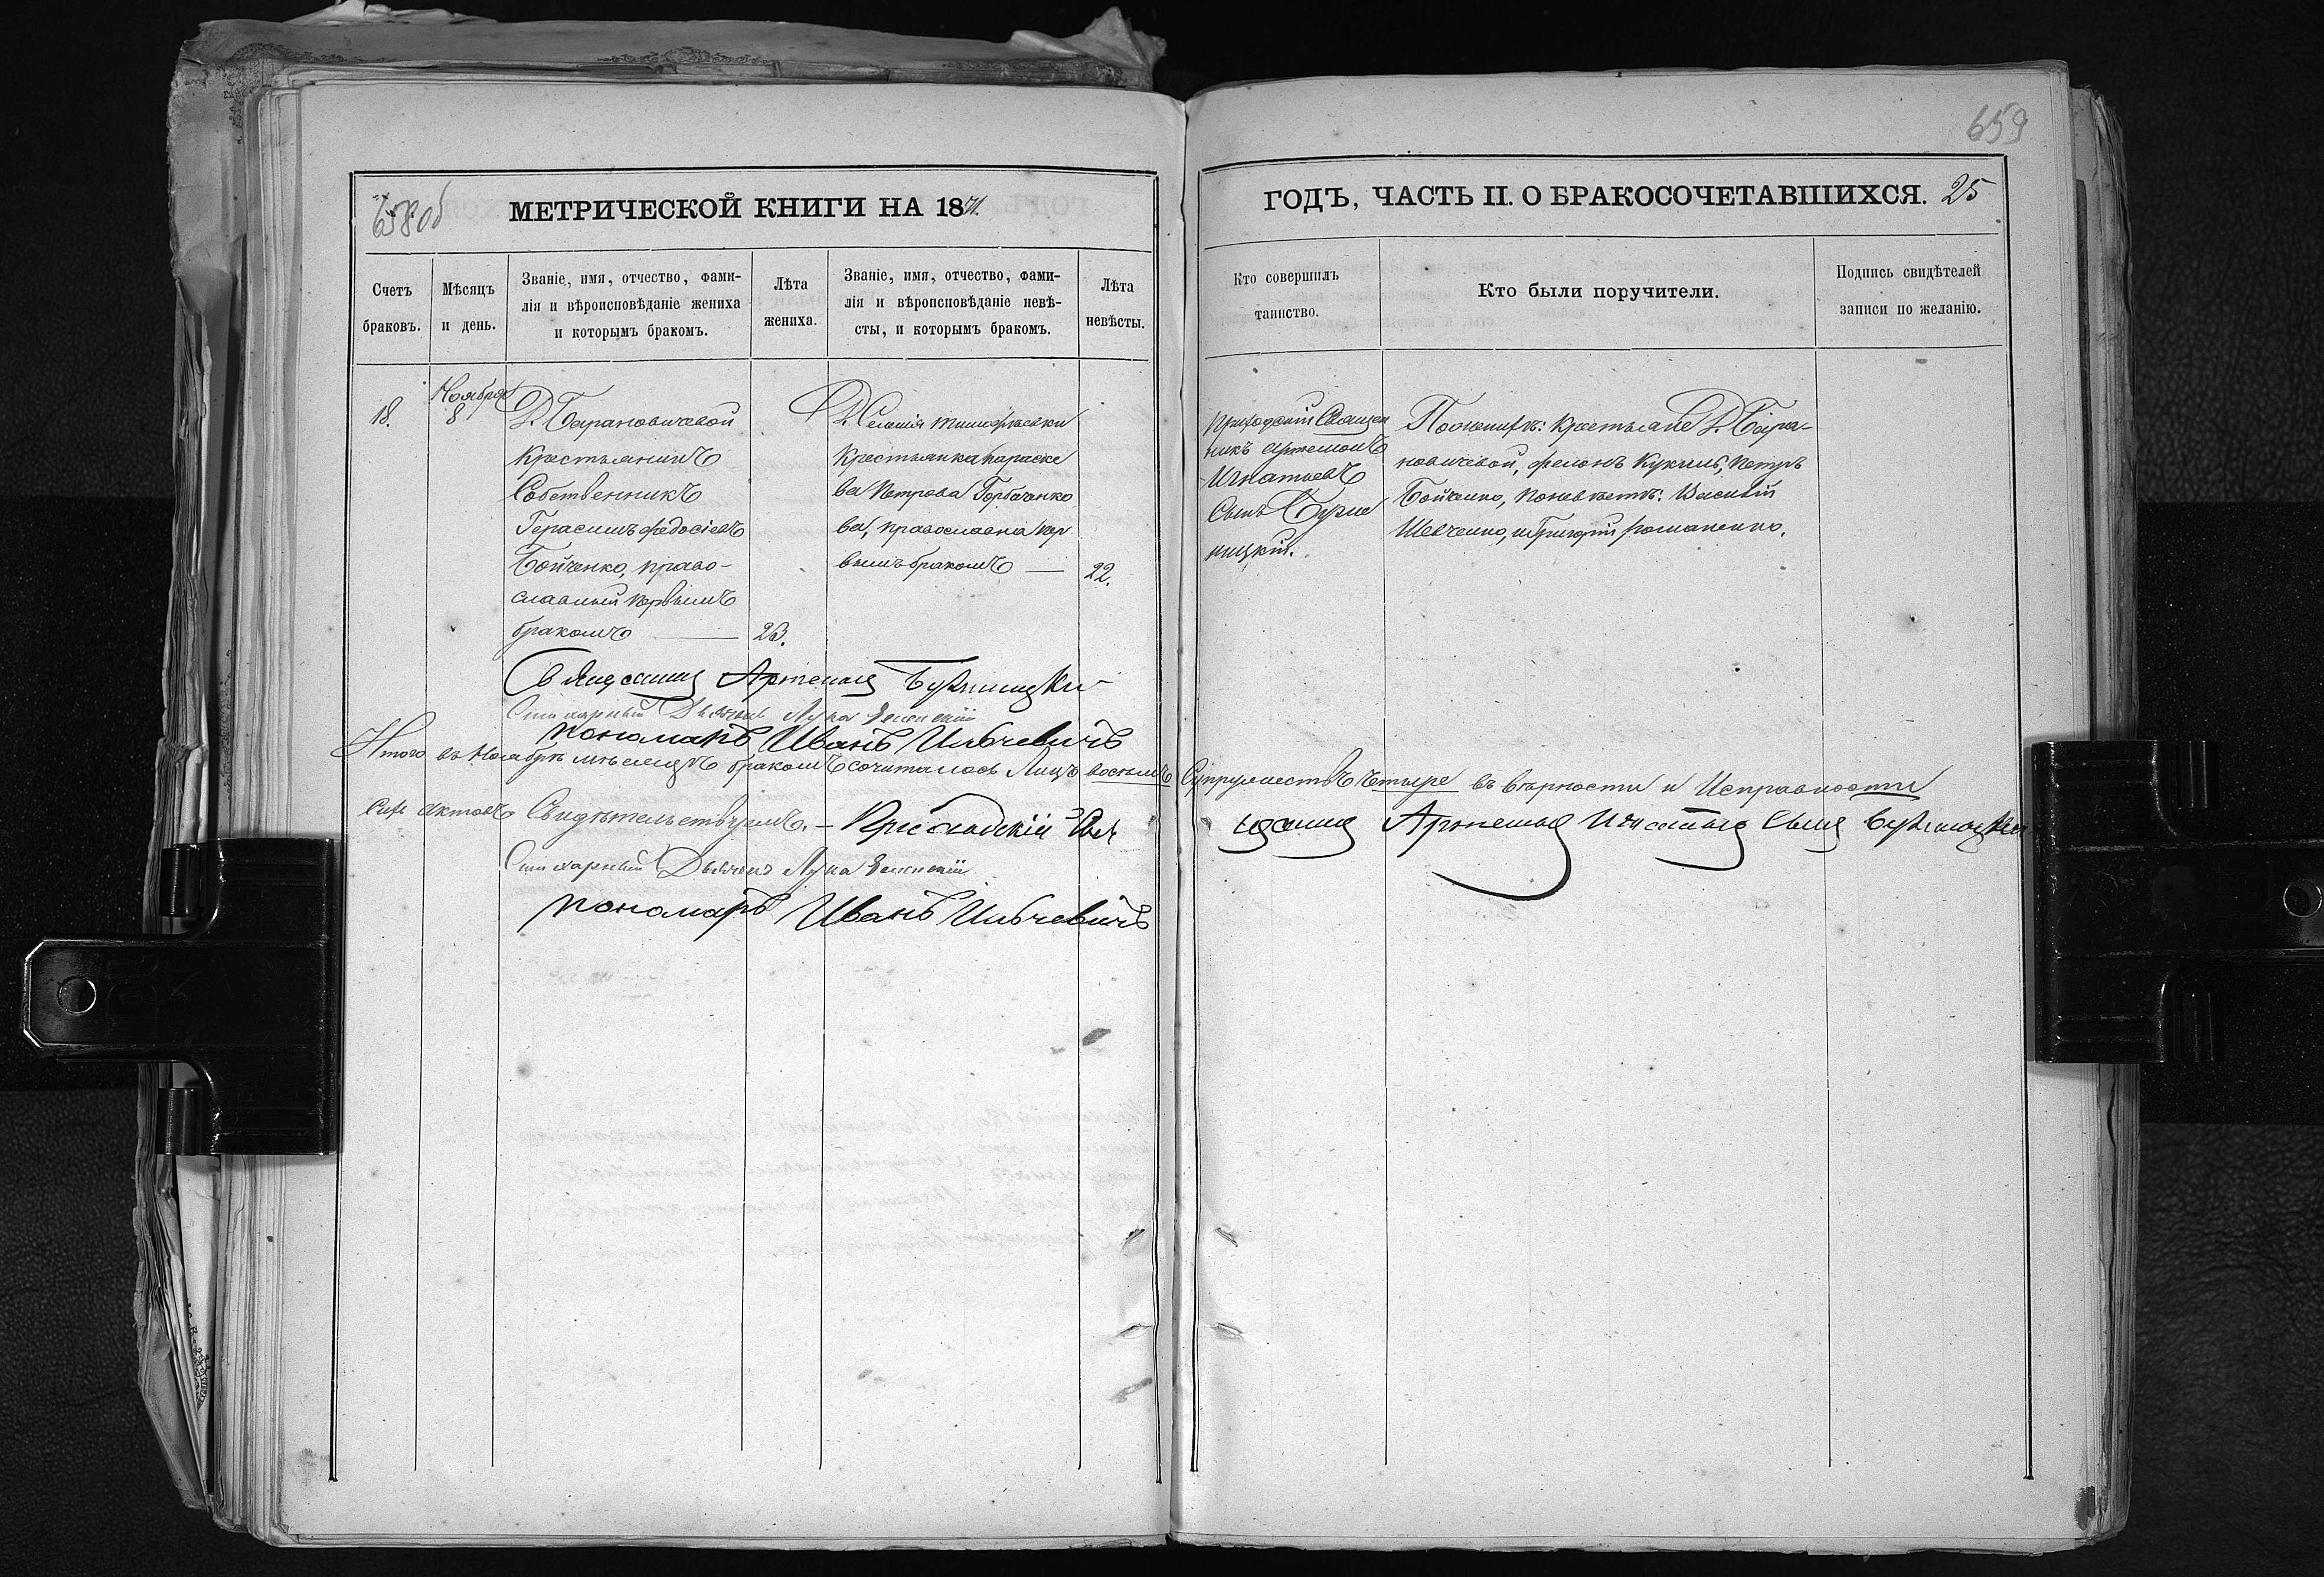 659
658об
МЕТРИЧЕСКОЙ КНИГИ НА 1871
ГОДЪ, ЧАСТЬ II. О БРАКОСОЧЕТАВШИХСЯ. 25
Счетъ
браковъ.
Мѣсяцъ
и день.
Званіе, имя, отчество, фами-
лія и вѣроисповѣданіе жениха
и которымъ бракомъ.
Лѣта
жениха.
Званіе, имя, отчество, фами-
лія и вѣроисповѣданіе невѣ-
сты, и которымъ бракомъ.
Лѣта
невѣсты.
Кто совершилъ
таинство.
Кто были поручители.
Подпись свидѣтелей
записи по желанію.
18.
Ноября
8
Д. Барановичевой
Крестьянинъ
Собственникъ
Герасимъ Федосіевъ
Бойченко, право-
славный первымъ
бракомъ — 23.
Д. Селенія
Крестьянка Параске
ва Петрова Горбаченко
ва, православна пер
вымъ бракомъ — 22.
Приходскій Священ
никъ Артемонъ
Игнатьевъ
Сынъ
ницкій.
По женихѣ: крестьяне Д. Бара-
новичевой, Петръ
Бойченко, по невѣстѣ: Василій
Шевченко, и Григорій Романенко.
Священникъ Артемонъ
Стихарный Дьячокъ Лука
Пономарь Иванъ Ильчевичъ
Итого въ Ноябрѣ мѣсяцѣ бракомъ сочиталось лицъ восемь Супружествъ четыре въ вѣрности и Исправности
Сихъ Актовъ Свидѣтельствуемъ. – Приходскій Священникъ Артемонъ Игнатьевъ Сынъ
Стихарный Дьячокъ Лука
Пономарь Иванъ Ильчевичъ